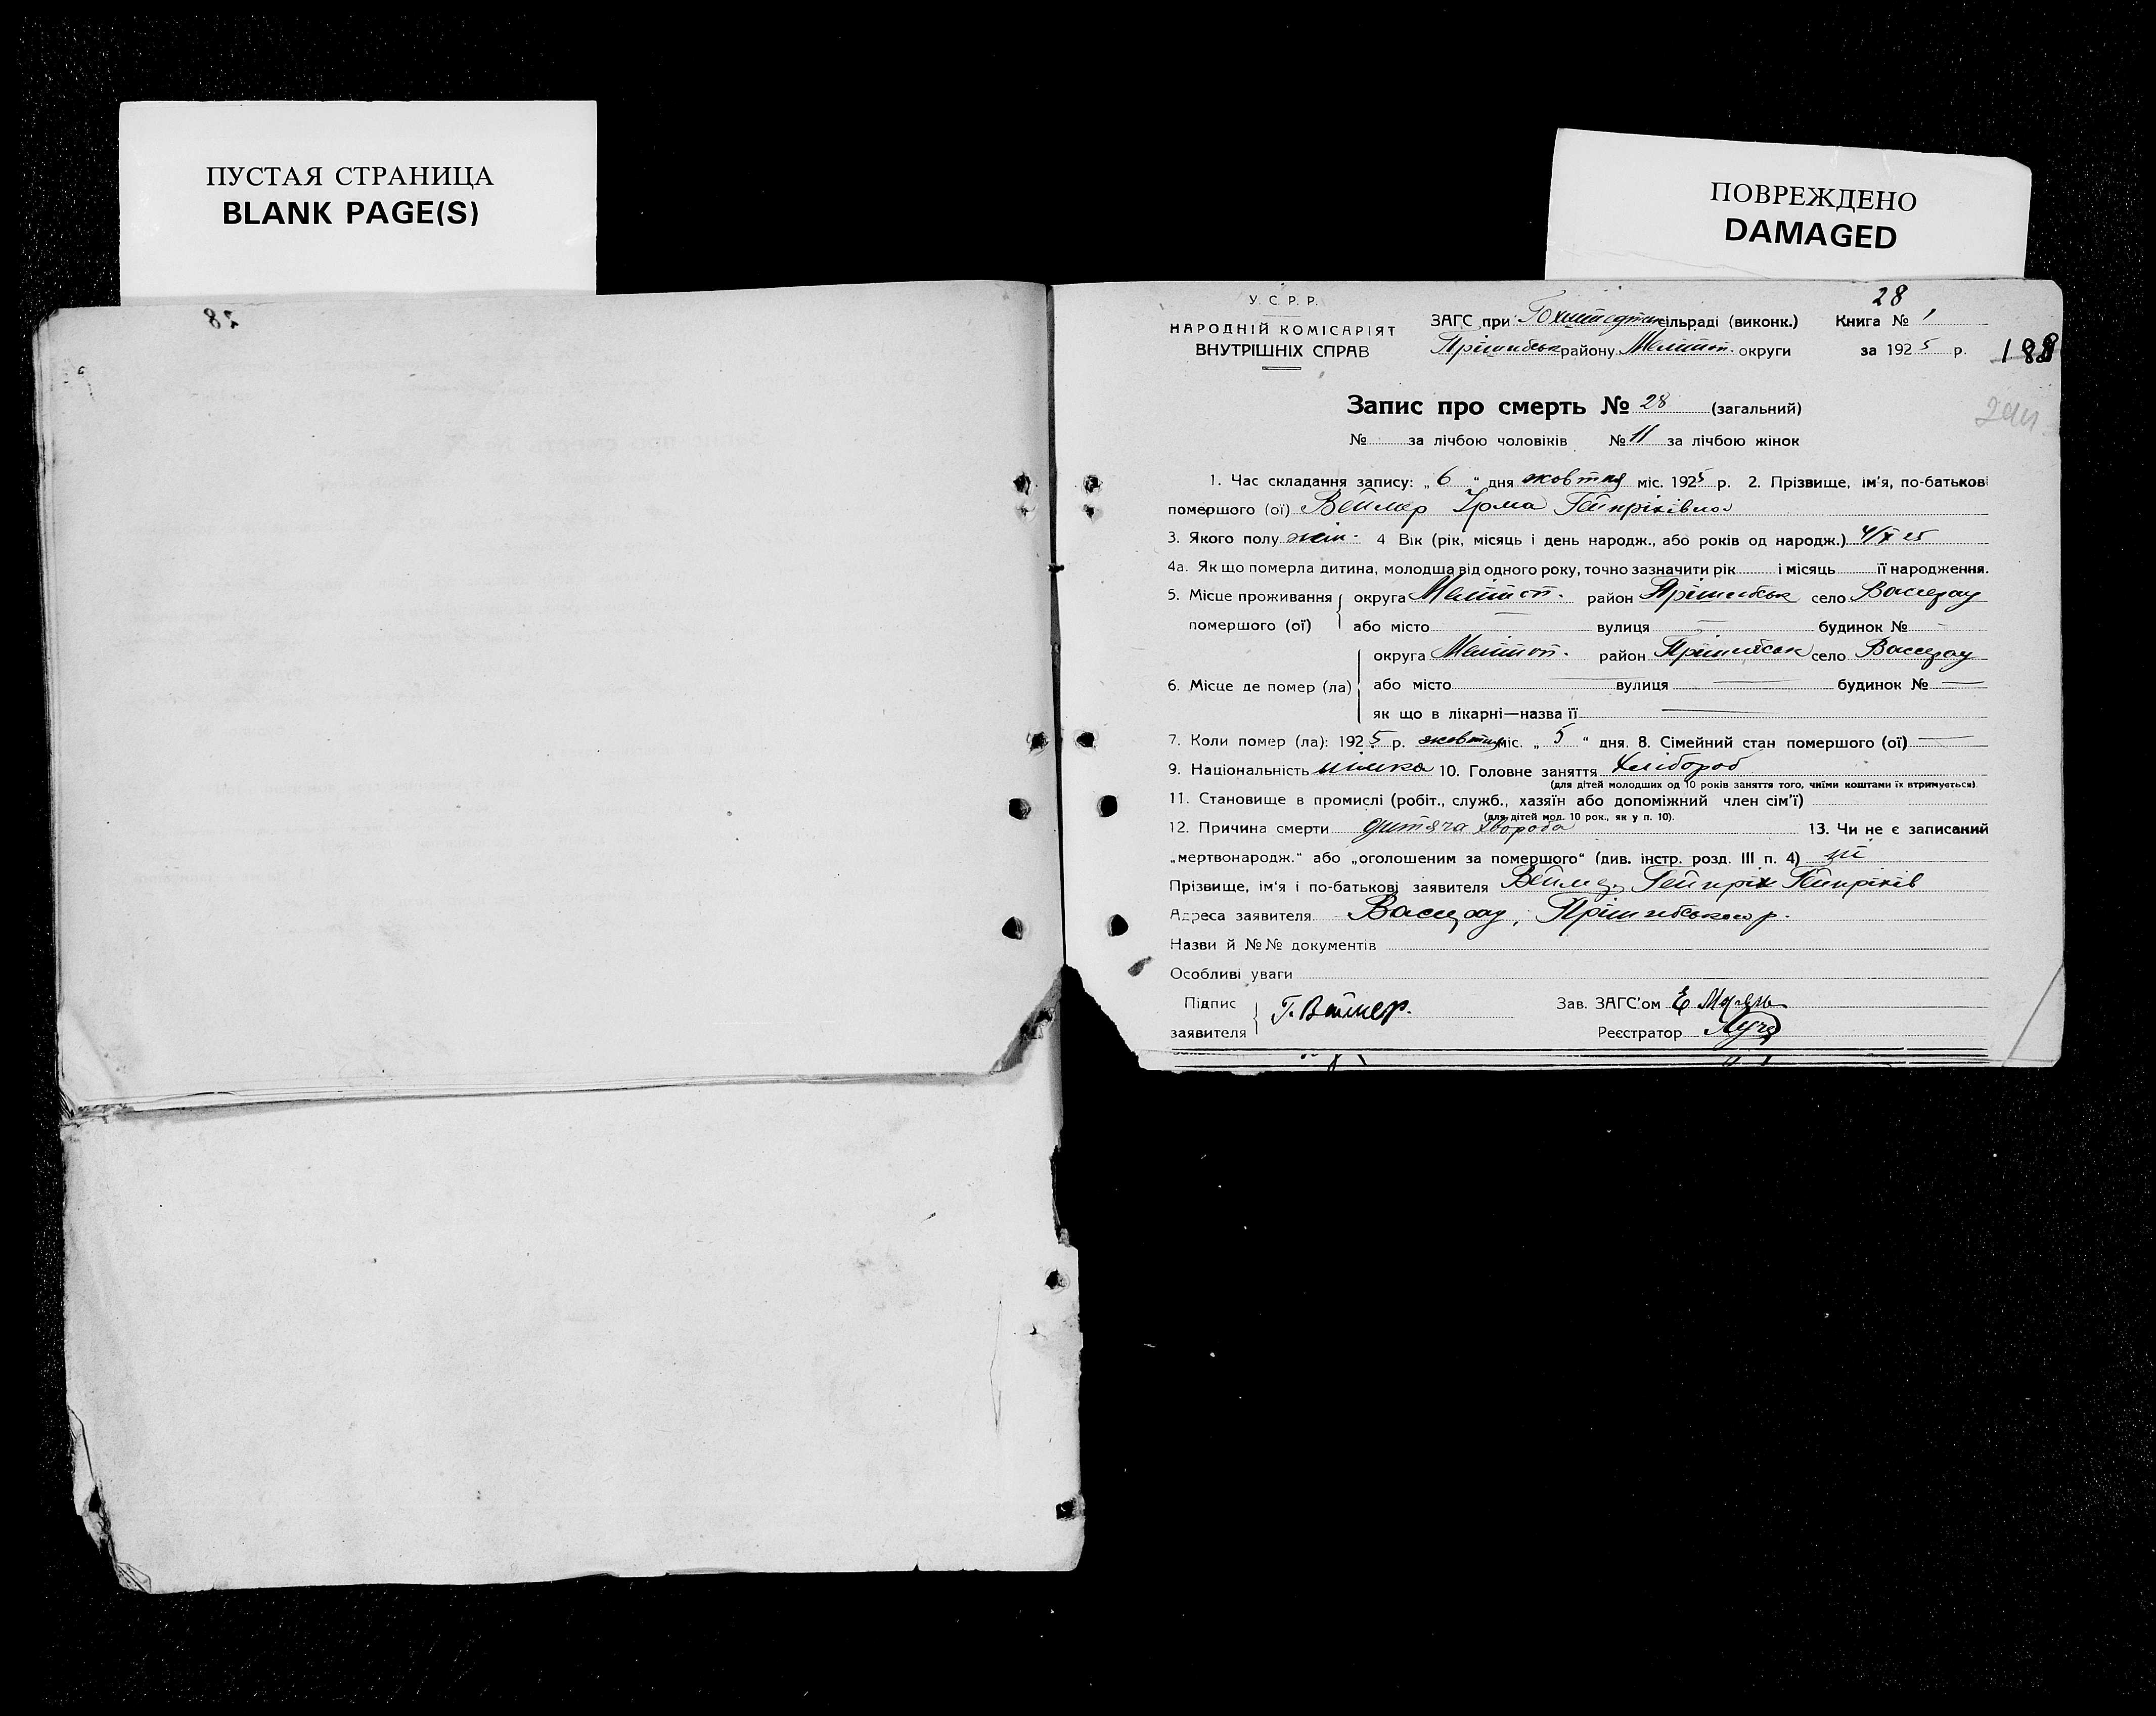 ПУСТАЯ СТРАНИЦА
BLANK PAGE(S)
ПОВРЕЖДЕНО
DAMAGED
28
У. С. Р. Р.
НАРОДНІЙ КОМІСАРІЯТ
ВНУТРІШНІХ СПРАВ
ЗАГС при Гохштедтск сільраді (виконк.) Книга № 1
Прішибськ району Меліттоп. округи за 1925 р.
188
Запис про смерть № 28 (загальний)
№ за лічбою чоловіків № 11 за лічбою жінок
1. Час складання запису: „6“ дня жовтня міс. 1925 р. 2. Прізвище, ім'я, по-батькові
помершого (ої) Веймер Ірма Гейнріхівна
3. Якого полу жін. 4 Вік (рік, місяць і день народж., або років од народж.) 4/X 25
4а. Як що померла дитина, молодша від одного року, точно зазначити рік і місяць її народження.
5. Місце проживання округа Меліттоп. район Прішибськ село Вассерау
помершого (ої) або місто — вулиця — будинок № -
округа Меліттоп. район Прішибськ село Вассерау
6. Місце де помер (ла) або місто — вулиця — будинок № —
як що в лікарні—назва її —
7. Коли помер (ла): 1925 р. жовтня міс. „5“ дня. 8. Сімейний стан помершого (ої) —
9. Національність німка 10. Головне заняття хлібороб
(для дітей молодших од 10 років заняття того, чиїми коштами їх втримується)
11. Становище в промислі (робіт., служб., хазяїн або допоміжний член сім'ї)
(для дітей мол. 10 рок., як у п. 10).
12. Причина смерти дитяча хвороба 13. Чи не є записаний
„мертвонародж.“ або „оголошеним за помершого“ (див. інстр. розд. III п. 4) ні
Прізвище, ім'я і по-батькові заявителя Веймер Гейнріх Гейнріхів
Адреса заявителя Вассерау, Прішибського р.
Назви й №№ документів
Особливі уваги
Підпис заявителя Г. Веймер.
Зав. ЗАГС'ом Е
Реєстратор